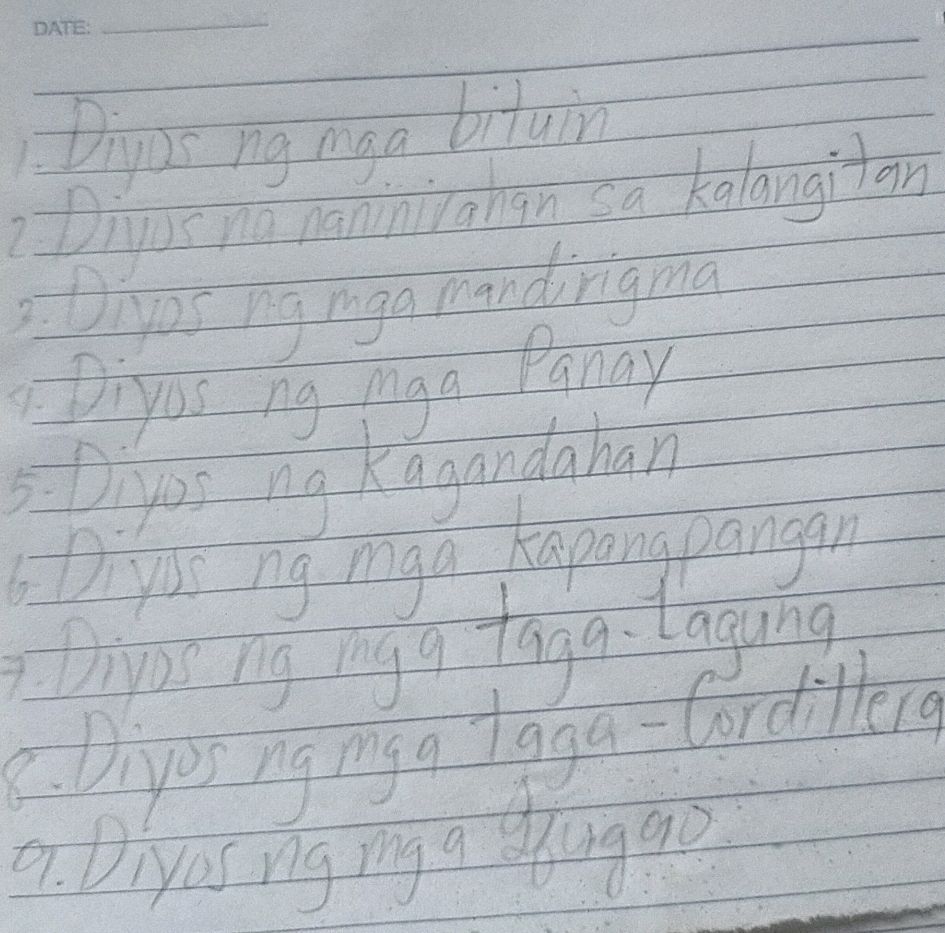 DATE:
1. Diyos ng mga bituin
2. Diyos na naninirahan sa kalangitan
3. Diyos ng mga mandirigma
4. Diyos ng mga Panay
5. Diyos ng kagandahan
6. Diyos ng mga kapangpangan
7. Diyos ng mga taga-Lagung
8. Diyos ng mga taga-Cordillera
9. Diyos ng mga